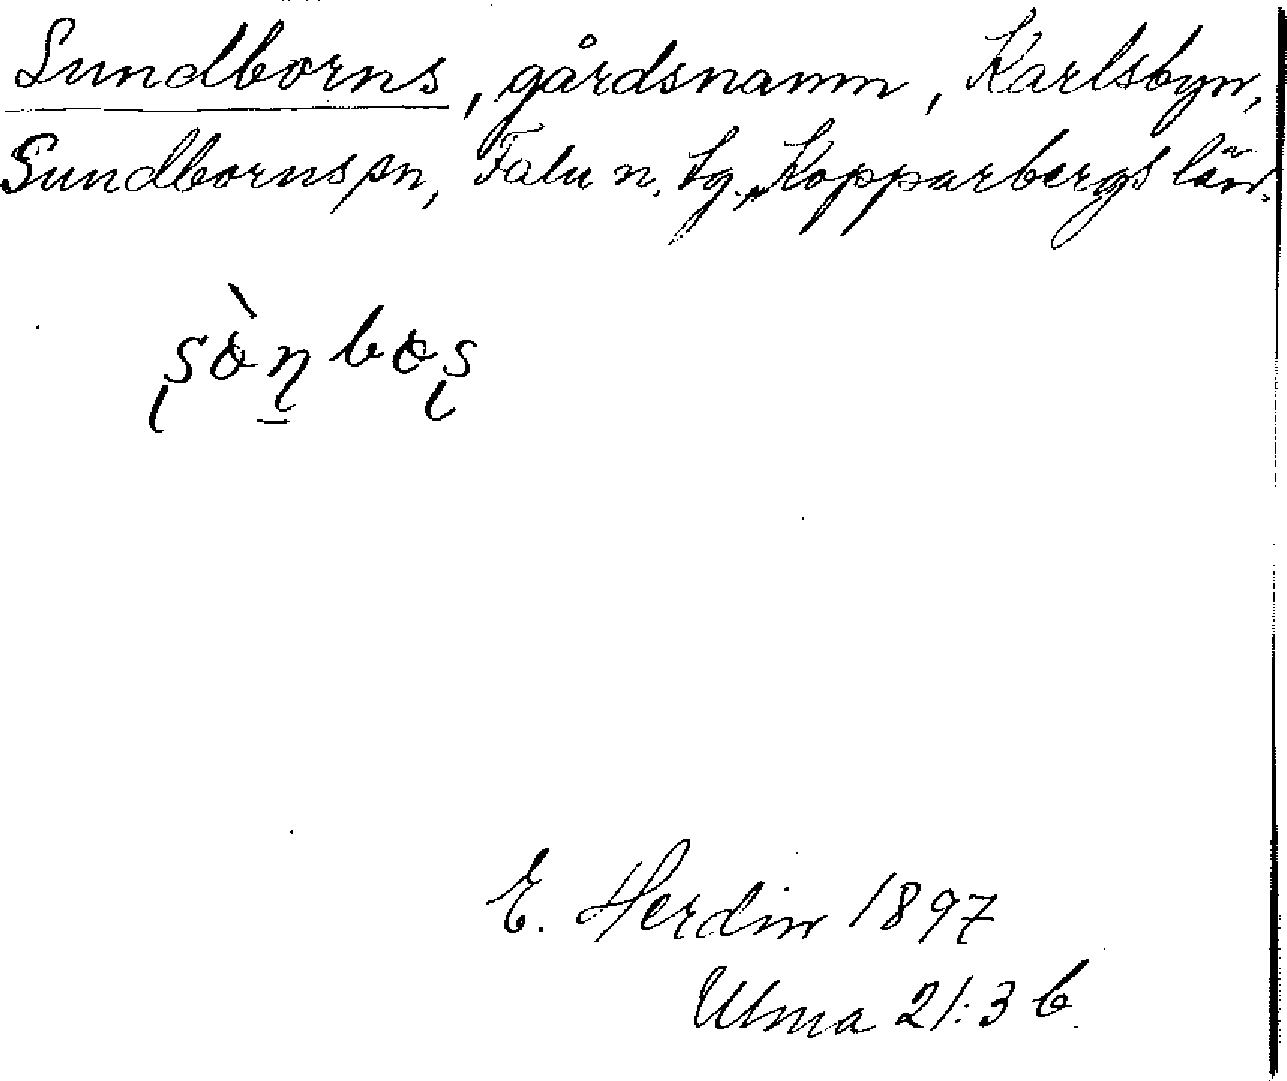 Sundborns, gårdsnamn, Karlsbyn,
Sundborns sn, Falu n. tg., Kopparbergs län.
E. Herdin 1897
Ulma 21:3 b.